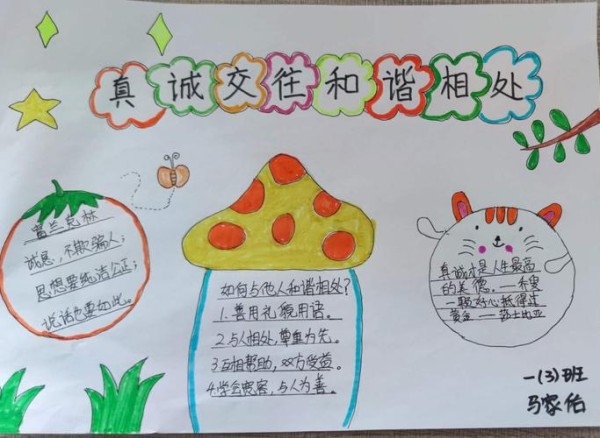 真诚交往和谐相处
富兰克林
诚恳，不欺骗人；
思想要纯洁公正；
说话也要如此。
如何与他人和谐相处？
1.善用礼貌用语。
2.与人相处，尊重为先。
3.互相帮助，双方受益。
4.学会宽容，与人为善。
真诚才是人生最高
的美德。——乔叟
一颗好心抵得过
黄金 —— 莎士比亚
一(3)班
马家佑